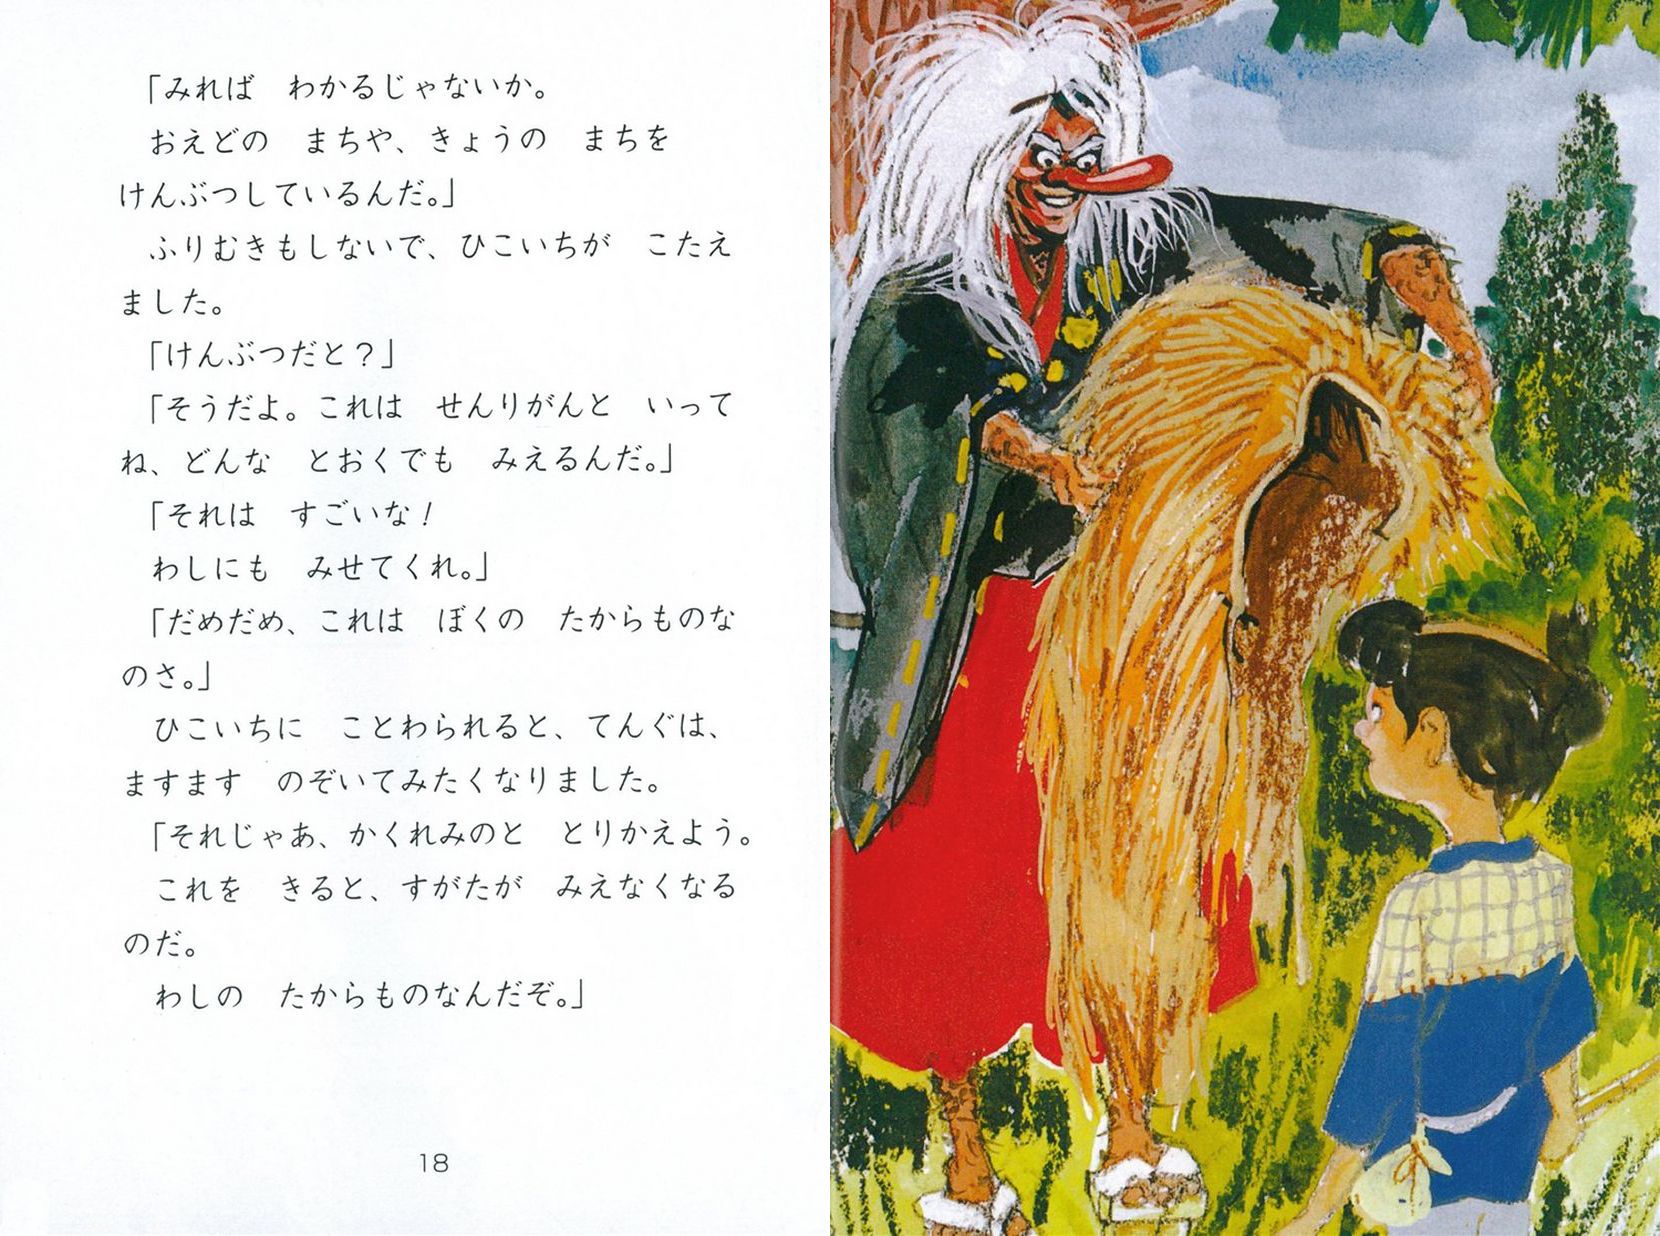 「みれば　わかるじゃないか。
おえどの　まちや、きょうの　まちを
けんぶつしているんだ。」
ふりむきもしないで、ひこいちが　こたえ
ました。
「けんぶつだと？」
「そうだよ。これは　せんりがんと　いって
ね、どんな　とおくでも　みえるんだ。」
「それは　すごいな！
わしにも　みせてくれ。」
「だめだめ、これは　ぼくの　たからものな
のさ。」
ひこいちに　ことわられると、てんぐは、
ますます　のぞいてみたくなりました。
「それじゃあ、かくれみのと　とりかえよう。
これを　きると、すがたが　みえなくなる
のだ。
わしの　たからものなんだぞ。」
18